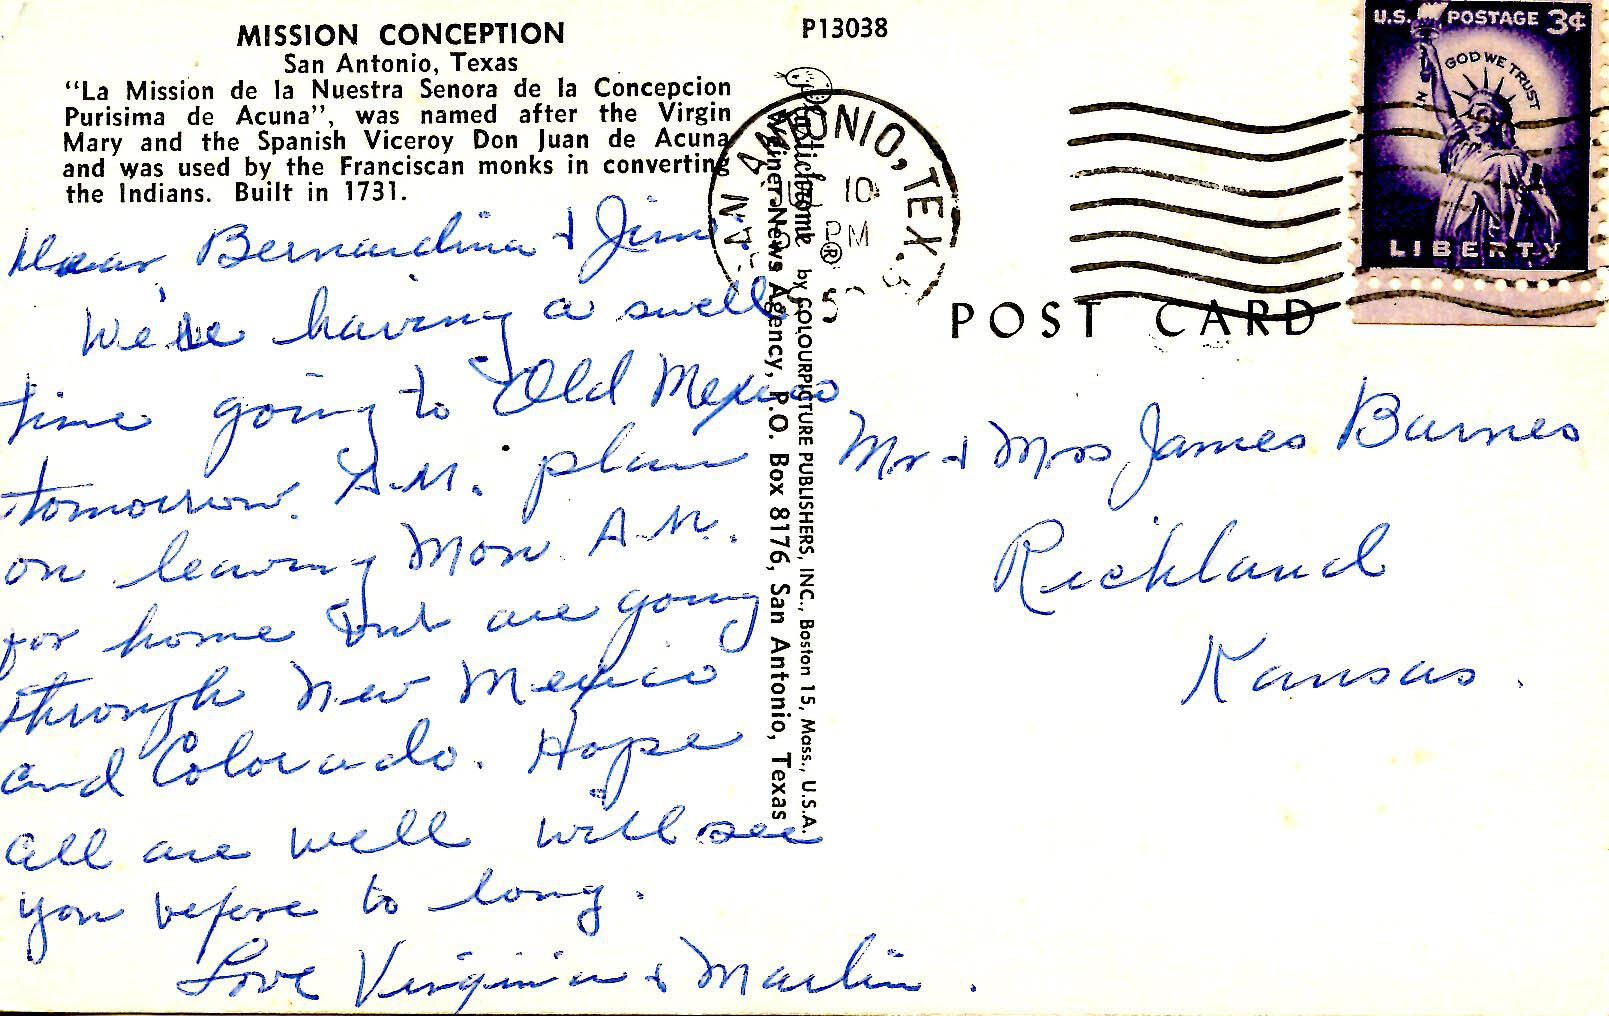 MISSION CONCEPTION
San Antonio, Texas
"La Mission de la Nuestra Senora de la Concepcion
Purisima de Acuna", was named after the Virgin
Mary and the Spanish Viceroy Don Juan de Acuna
and was used by the Franciscan monks in converting
the Indians. Built in 1731.
Dear Bernardina + Jim.
We're having a swell
time going to Old Mexico
tomorrow A.M. plan
on leaving Mon A.M.
for home but are going
through New Mexico
and Colorado. Hope
all are well will see
you before to long.
Love Virginia + Marlin.
P13038
Plastichrome ® by COLOURPICTURE PUBLISHERS, INC., Boston 15, Mass., U.S.A.
Weiner News Agency, P.O. Box 8176, San Antonio, Texas
SAN ANTONIO, TEX.
10
PM
U.S. POSTAGE 3¢
IN GOD WE TRUST
LIBERTY
POST CARD
Mr + Mrs James Barnes
Richland
Kansas.